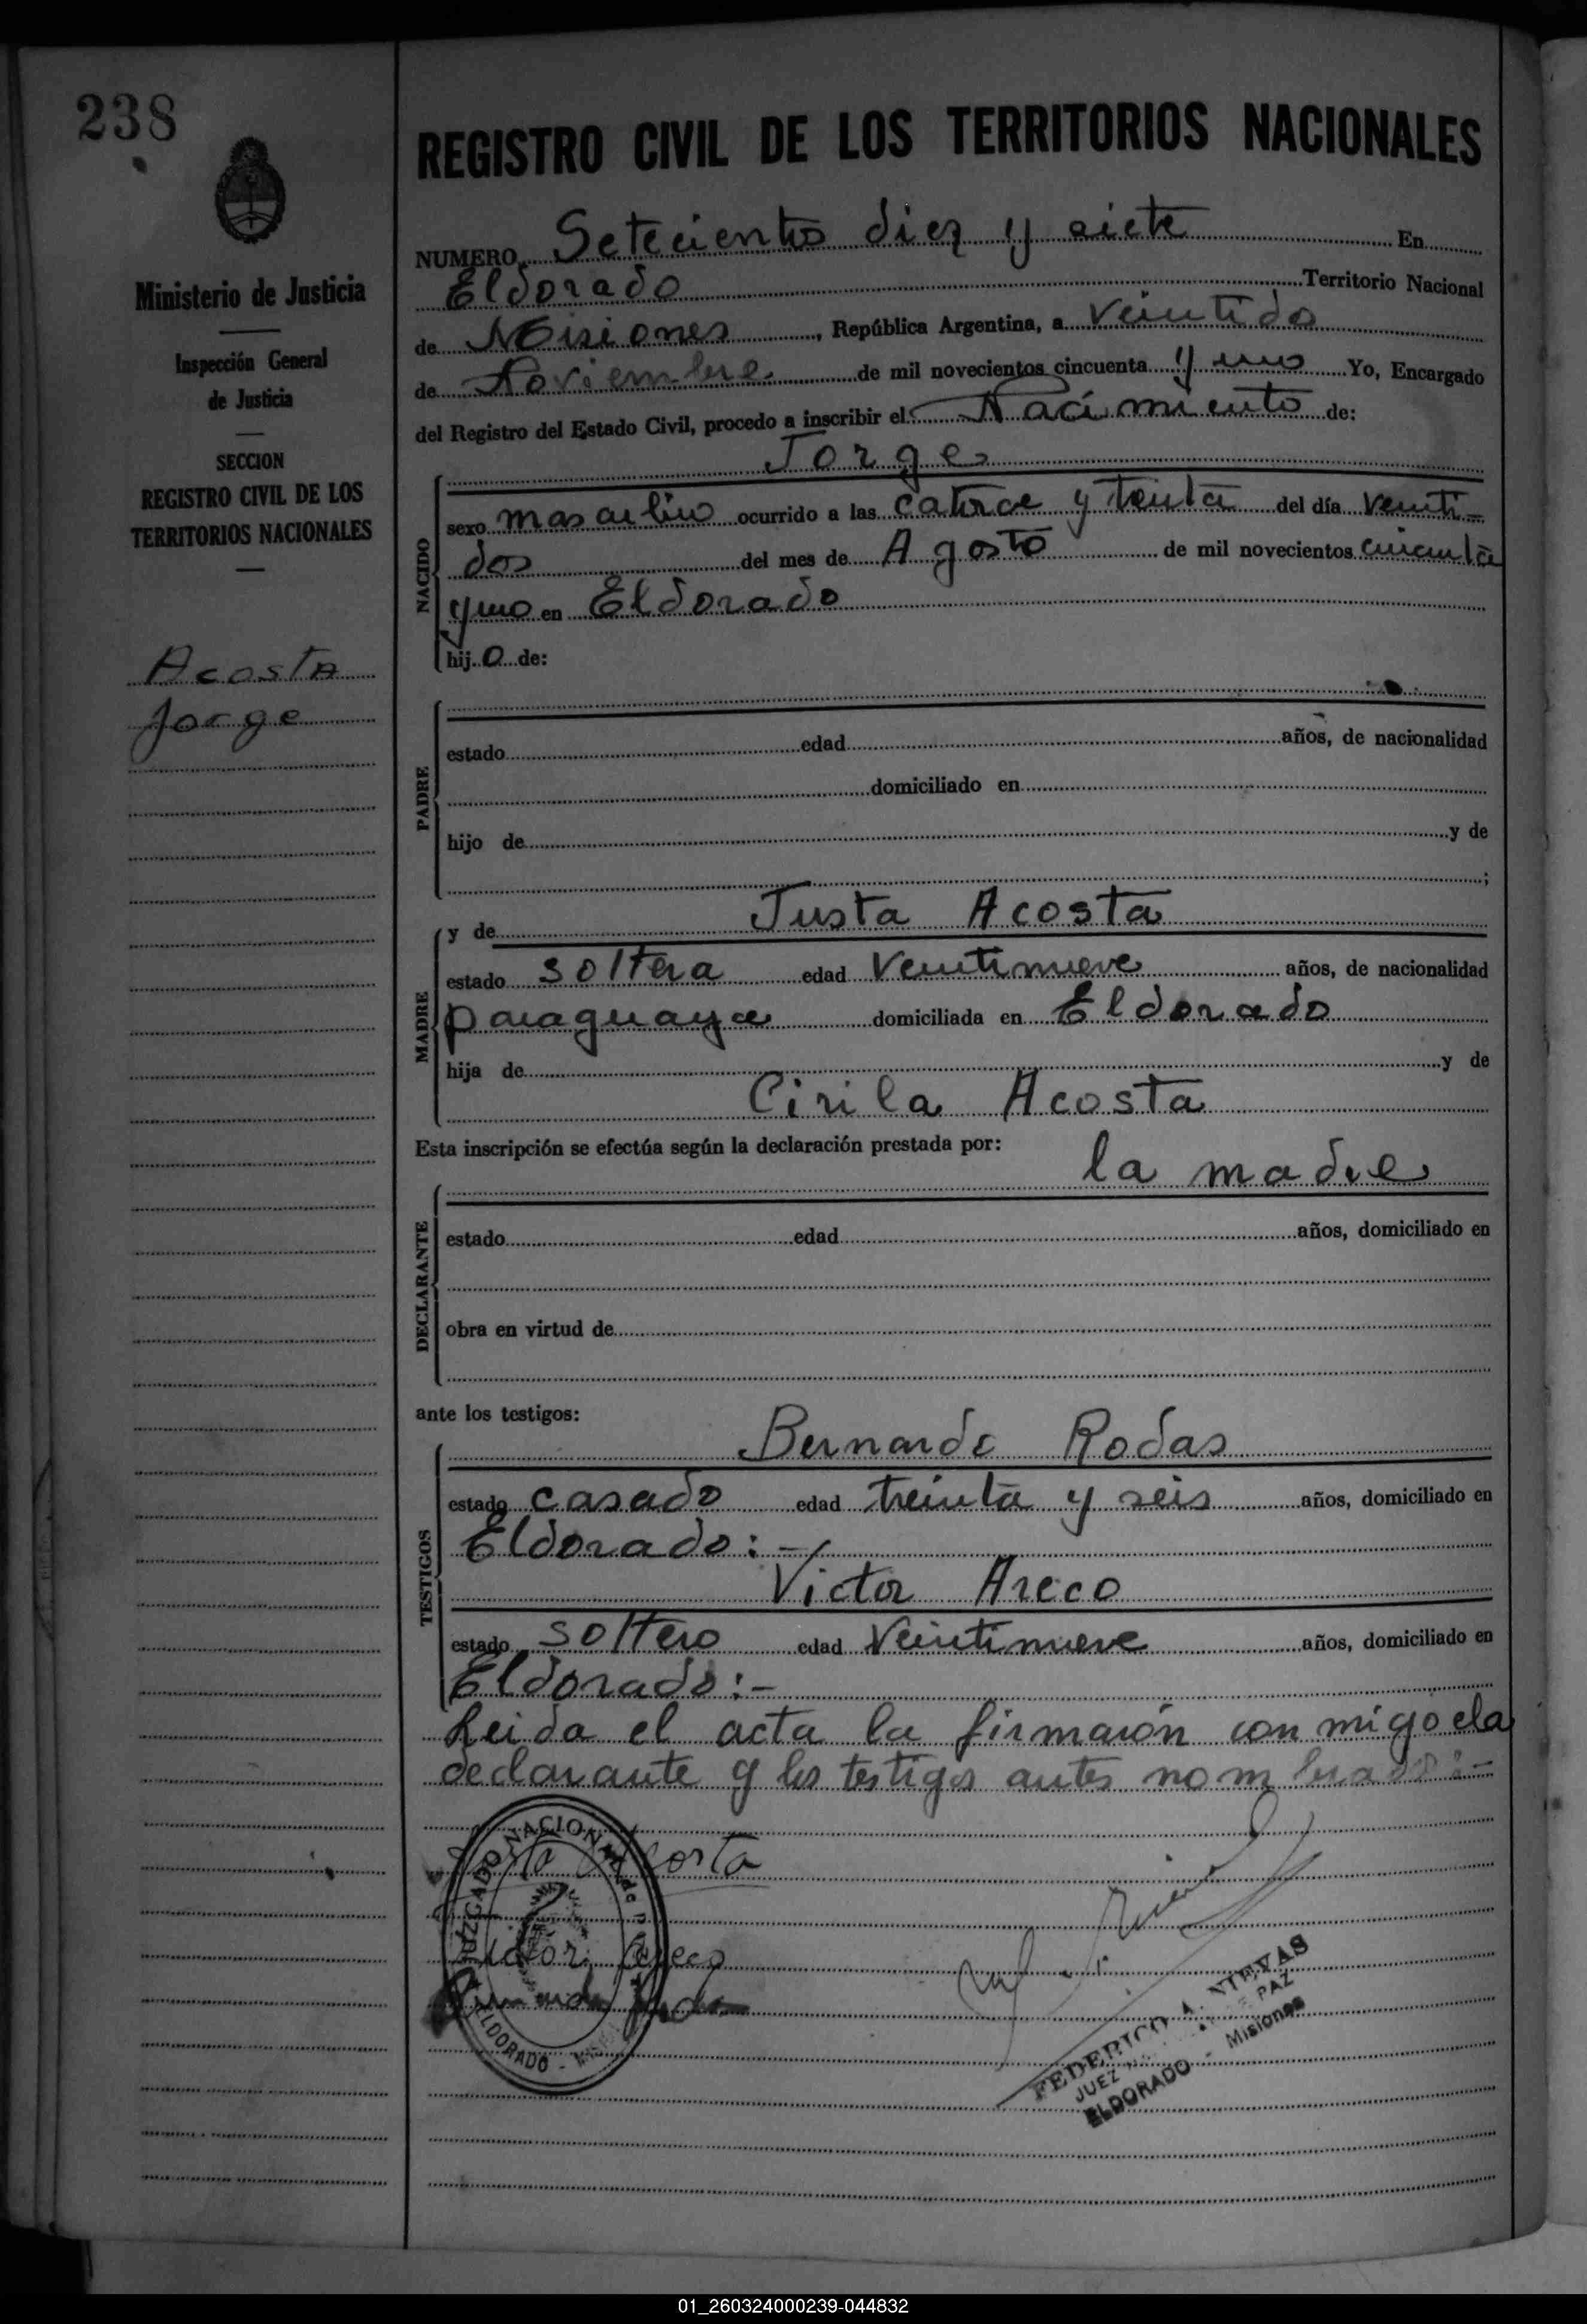 238
Ministerio de Justicia
Inspección General
de Justicia
SECCION
REGISTRO CIVIL DE LOS
TERRITORIOS NACIONALES
Acosta
Jorge
REGISTRO CIVIL DE LOS TERRITORIOS NACIONALES
NUMERO Setecientos diez y siete En
Eldorado Territorio Nacional
de Misiones, República Argentina, a veintidos
de Noviembre de mil novecientos cincuenta y uno Yo, Encargado
del Registro del Estado Civil, procedo a inscribir el Nacimiento de:
Jorge
NACIDO
sexo masculino ocurrido a las catorce y treinta del día veinti-
dos del mes de Agosto de mil novecientos cincuenta
y uno en Eldorado
hijo de:
PADRE
estado edad años, de nacionalidad
domiciliado en
hijo de y de
;
MADRE
y de Justa Acosta
estado soltera edad veintinueve años, de nacionalidad
paraguaya domiciliada en Eldorado
hija de y de
Cirila Acosta
Esta inscripción se efectúa según la declaración prestada por:
la madre
DECLARANTE
estado edad años, domiciliado en
obra en virtud de
ante los testigos:
TESTIGOS
Bernardo Rodas
estado casado edad treinta y seis años, domiciliado en
Eldorado:-
Victor Areco
estado soltero edad veintinueve años, domiciliado en
Eldorado:-
Leida el acta la firmarón con migo la
declarante y los testigos antes nombrados:-
Acosta
JUZGADO NACIONAL de
Victor Areco
ELDORADO - 
FEDERICO A. NIEVAS
JUEZ DE PAZ
ELDORADO - Misiones
01_260324000239-044832